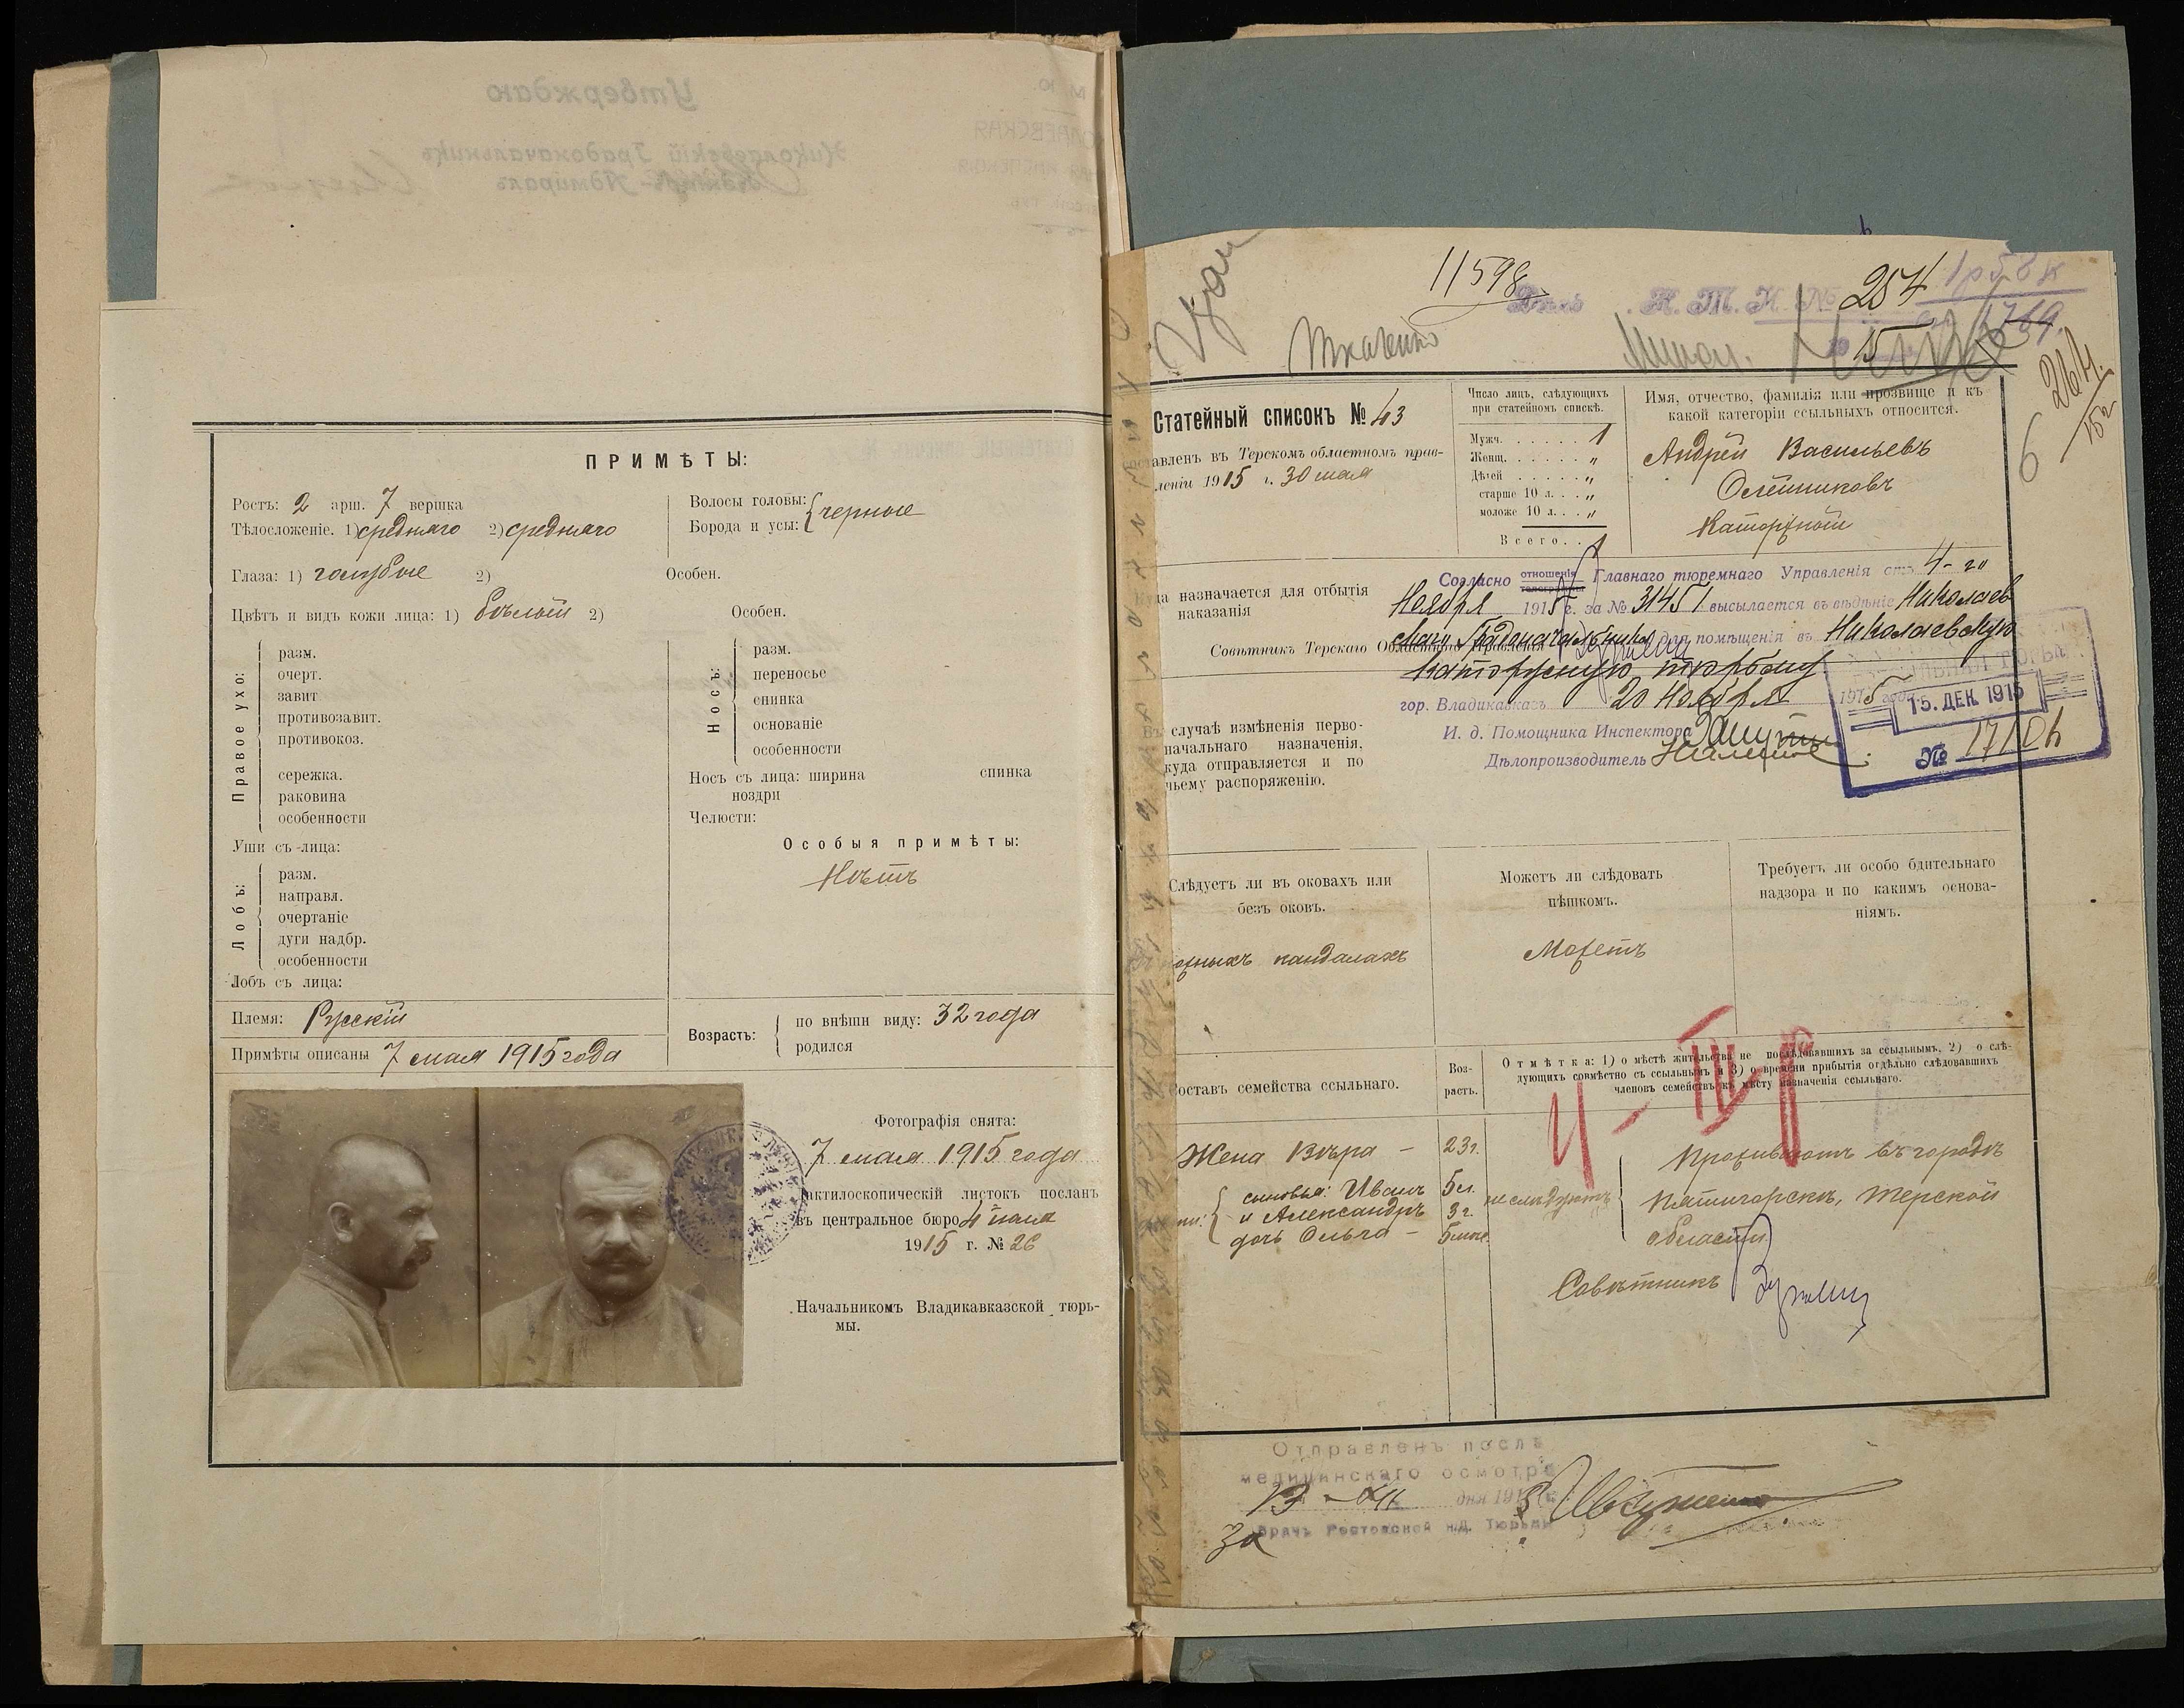 ПРИМѢТЫ:
Ростъ: 2 арш. 7 вершка
Тѣлосложеніе. 1) средняго 2) средняго
Глаза: 1) голубые 2)
Цвѣтъ и видъ кожи лица: 1) бѣлый 2)
Правое ухо:
разм.
очерт.
завит
противозавит.
противокоз.
сережка.
раковина
особенности
Уши съ лица:
Лобъ:
разм.
направл.
очертаніе
дуги надбр.
особенности
Лобъ съ лица:
Племя: Русскій
Примѣты описаны 7 мая 1915 года
Волосы головы:
Борода и усы: черные
Особен.
Особен.
Носъ:
разм.
переносье
спинка
основаніе
особенности
Носъ съ лица: ширина спинка
ноздри
Челюсти:
Особыя примѣты:
Нѣтъ
Возрасть:
по внѣшн виду: 32 года
родился
Фотографія снята:
7 мая 1915 года
актилоскопическій листокъ посланъ
въ центральное бюро 4
1915 г. № 26
Начальникомъ Владикавказской тюрь-
мы.
11598
254
Ткаченко
264
Статейный списокъ № 43
авленъ въ Терскомъ областномъ прав-
леніи 1915 г. 30 мая
Число лицъ, слѣдующихъ
при статейномъ спискѣ.
Мужч. 1
Женщ. "
Дѣтей "
старше 10 л. "
моложе 10 л. "
Всего. 1
Имя, отчество, фамилія или прозвище и къ
какой категоріи ссыльныхъ относится.
Андрей Васильевъ
Олейниковъ
Каторжный
Куда назначается для отбытія
наказанія
Согласно отношенія Главнаго тюремнаго Управленія отъ 4-го
телеграммы
Ноября 1915 г. за № 31451 высылается въ вѣдѣніе Николаев
скаго Градоначальника для помѣщенія въ Николаевскую
Совѣтникъ Терскаго Областного Правленія
каторжную тюрьму
гор. Владикавказъ 20 Ноября 1915 года
И. д. Помощника Инспектора
Дѣлопроизводитель
15. ДЕК. 1915
№ 17104
Въ случаѣ измѣненія перво-
начальнаго назначенія,
куда отправляется и по
чьему распоряженію.
Слѣдуетъ ли въ оковахъ или
безъ оковъ.
кандалахъ
Можетъ ли слѣдовать
пѣшкомъ.
Можетъ
Требуетъ ли особо бдительнаго
надзора и по какимъ основа-
ніямъ.
Составъ семейства ссыльнаго.
Воз-
расть.
Отмѣтка: 1) о мѣстѣ жительства не послѣдовавшихъ за ссыльнымъ, 2) о слѣ-
дующихъ совмѣстно съ ссыльнымъ и 3) о времени прибытія отдѣльно слѣдовавшихъ
членовъ семействъ къ мѣсту назначенія ссыльнаго.
Жена Вѣра – 23 г.
сыновья: Иванъ 5 л.
и Александръ 3 г.
дочь Ольга – 5 мѣс.
не слѣдуютъ
Проживаютъ въ городѣ
Пятигорскѣ, Терской
области
Совѣтникъ
Отправленъ послѣ
медицинскаго осмотра
13 - XII дня 1915 г.
За Врачъ Ростовской н/Д. Тюрьмы